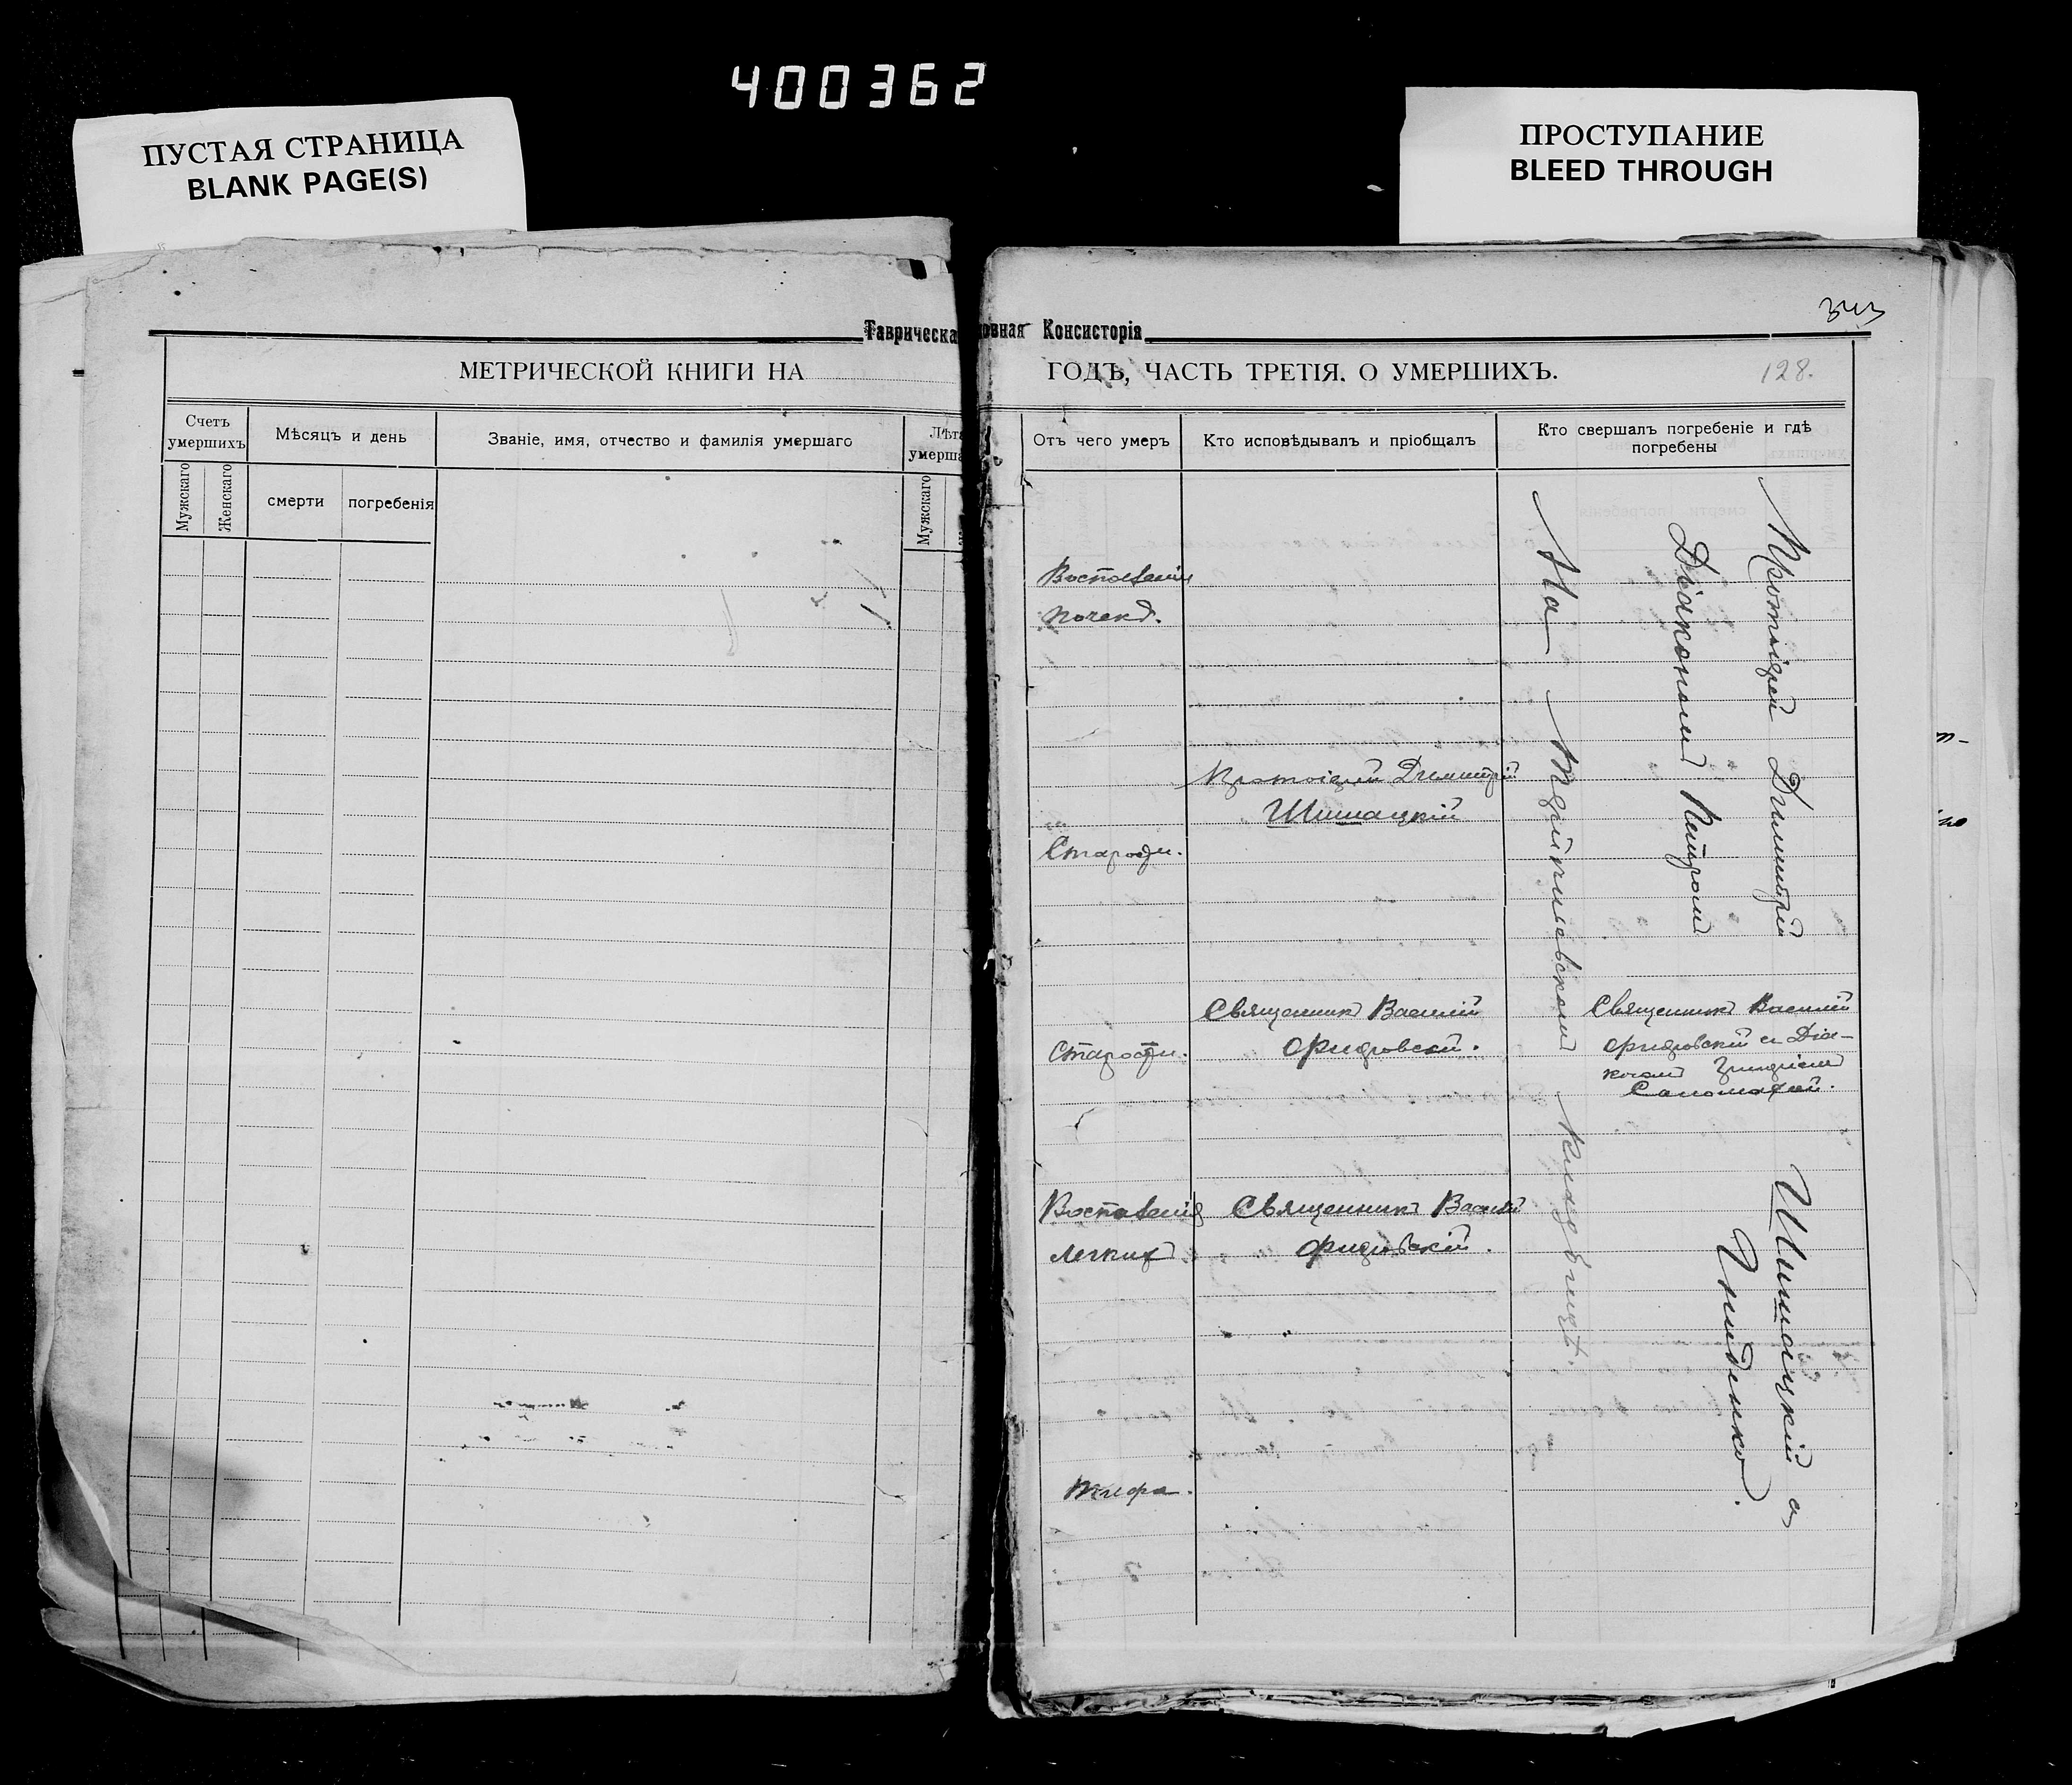 400362
ПУСТАЯ СТРАНИЦА
BLANK PAGE(S)
ПРОСТУПАНИЕ
BLEED THROUGH
343
Таврическа
овная Консисторія
МЕТРИЧЕСКОЙ КНИГИ НА
ГОДЪ, ЧАСТЬ ТРЕТІЯ. О УМЕРШИХЪ.
128.
Счетъ умершихъ
Мужскаго
Женскаго
Мѣсяцъ и день
смерти
погребенія
Званіе, имя, отчество и фамилія умершаго
Лѣта
умерша
Мужскаго
Отъ чего умеръ
Кто исповѣдывалъ и пріобщалъ
Кто свершалъ погребеніе и гдѣ
погребены
Воспаленія
почекъ.
Протоіерей Димитрій
Шишацкій
Старости.
Священникъ Василій
Старости.
Воспаленія
Священникъ Василій
легкихъ
Тифа.
На кладбищѣ.
Священникъ Василій
и Діа-
кономъ
Діакономъ Петромъ
Протоіерей Димитрій Шишацкій съ